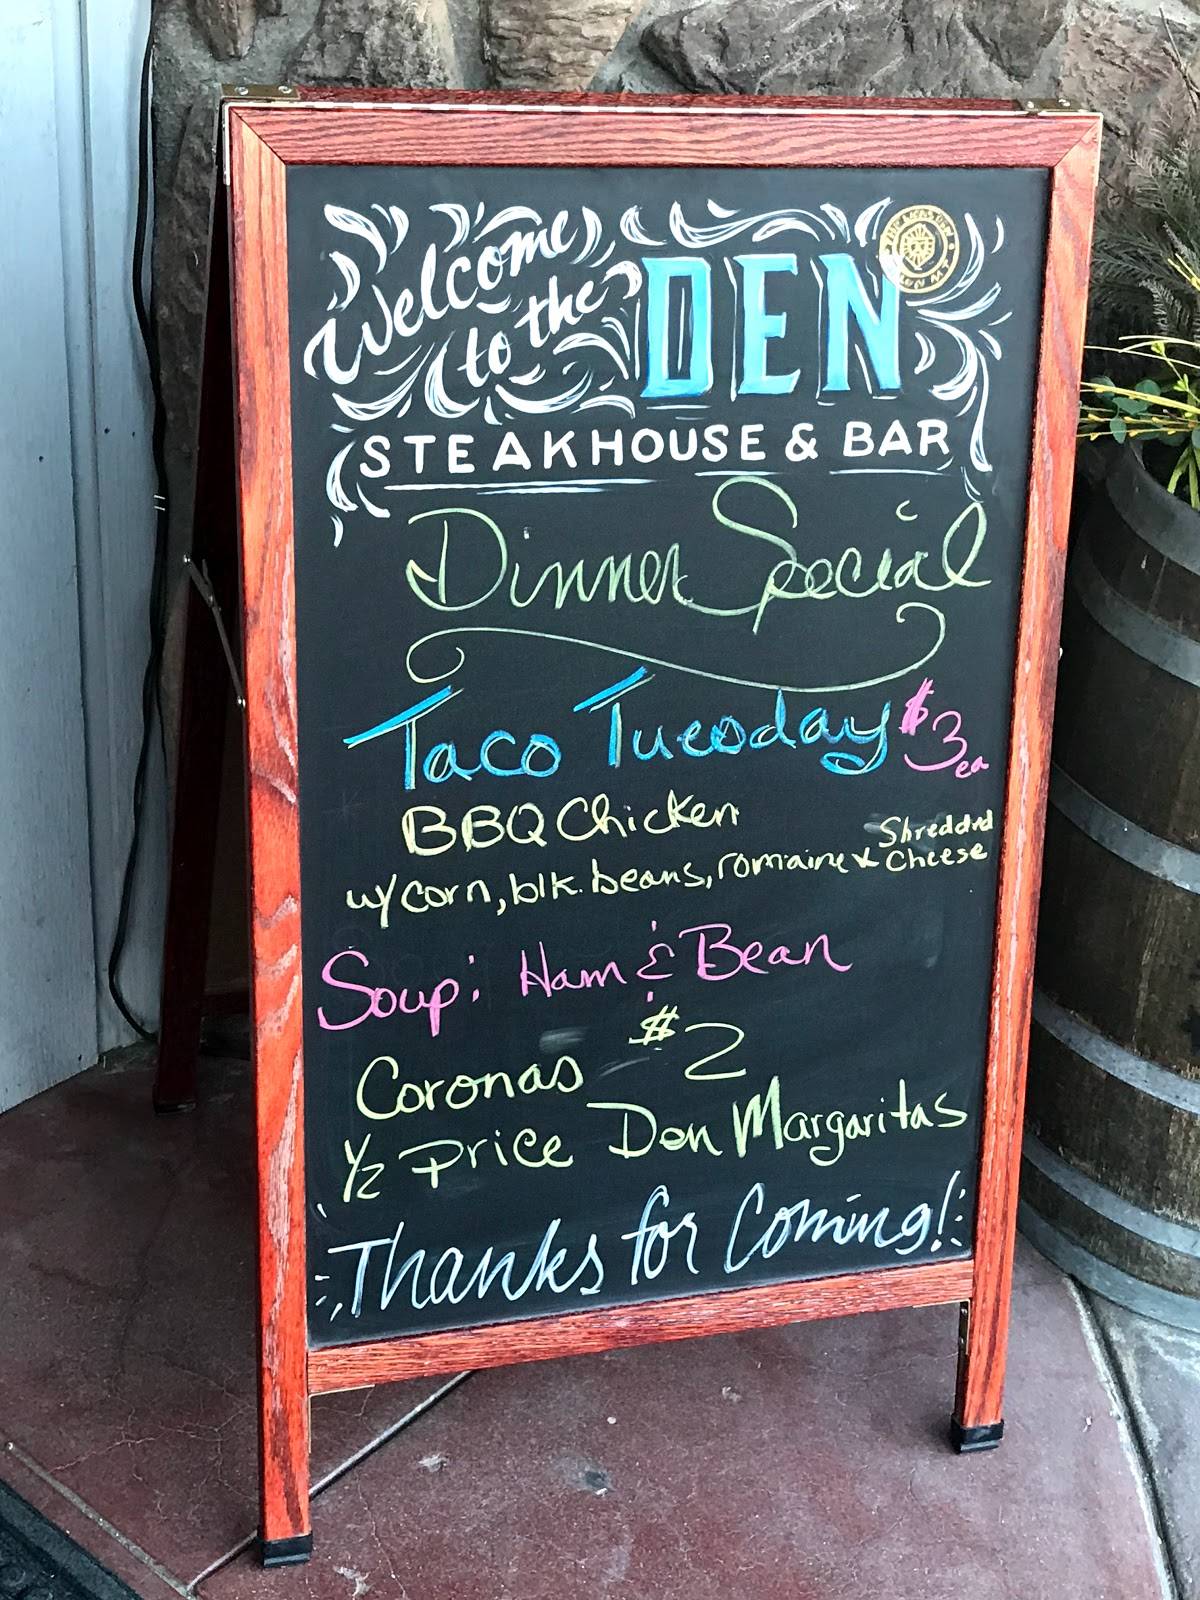 Welcome
to the
DEN
STEAKHOUSE & BAR
Dinner Special
Taco Tuesday $3 ea
BBQ Chicken
w/ corn, blk. beans, romaine & Shredded Cheese
Soup: Ham & Bean
Coronas $2
1/2 Price Den Margaritas
Thanks for Coming!